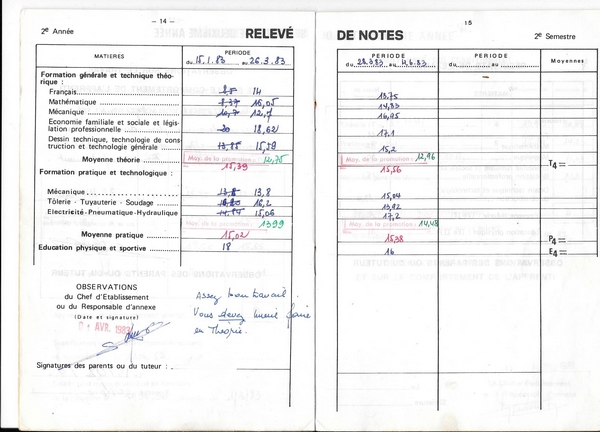 — 14 —
2e Année
RELEVÉ
MATIERES
PERIODE
du 15.1.83 au 26.3.83
Formation générale et technique théorique :
Français 14
Mathématique 15,05
Mécanique 12,7
Economie familiale et sociale et législation professionnelle 18,62
Dessin technique, technologie de construction et technologie générale 15,59
Moy. de la promotion : 12,75
Moyenne théorie 15,39
Formation pratique et technologique :
Mécanique 13,8
Tôlerie - Tuyauterie - Soudage 16,2
Electricité-Pneumatique-Hydraulique 15,06
Moy. de la promotion : 13,99
Moyenne pratique 15,02
Education physique et sportive 18
OBSERVATIONS
du Chef d'Etablissement
ou du Responsable d'annexe
(Date et signature)
AVR. 1983
Assez bon travail.
Vous devez mieux faire
en Théorie.
Signatures des parents ou du tuteur :
15
DE NOTES
2e Semestre
PERIODE
du 28.3.83 au 4.6.83
PERIODE
du au
Moyennes
13,75
14,33
16,95
17,1
15,2
Moy. de la promotion : 12,96
15,56
T4 =
15,04
13,92
17,2
Moy. de la promotion : 14,48
15,38
P4 =
16
E4 =